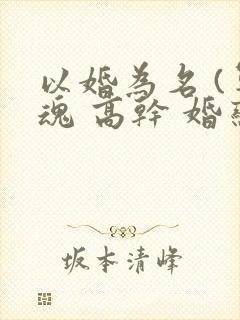 以婚為名(
魂 高幹 婚
坂本清峰